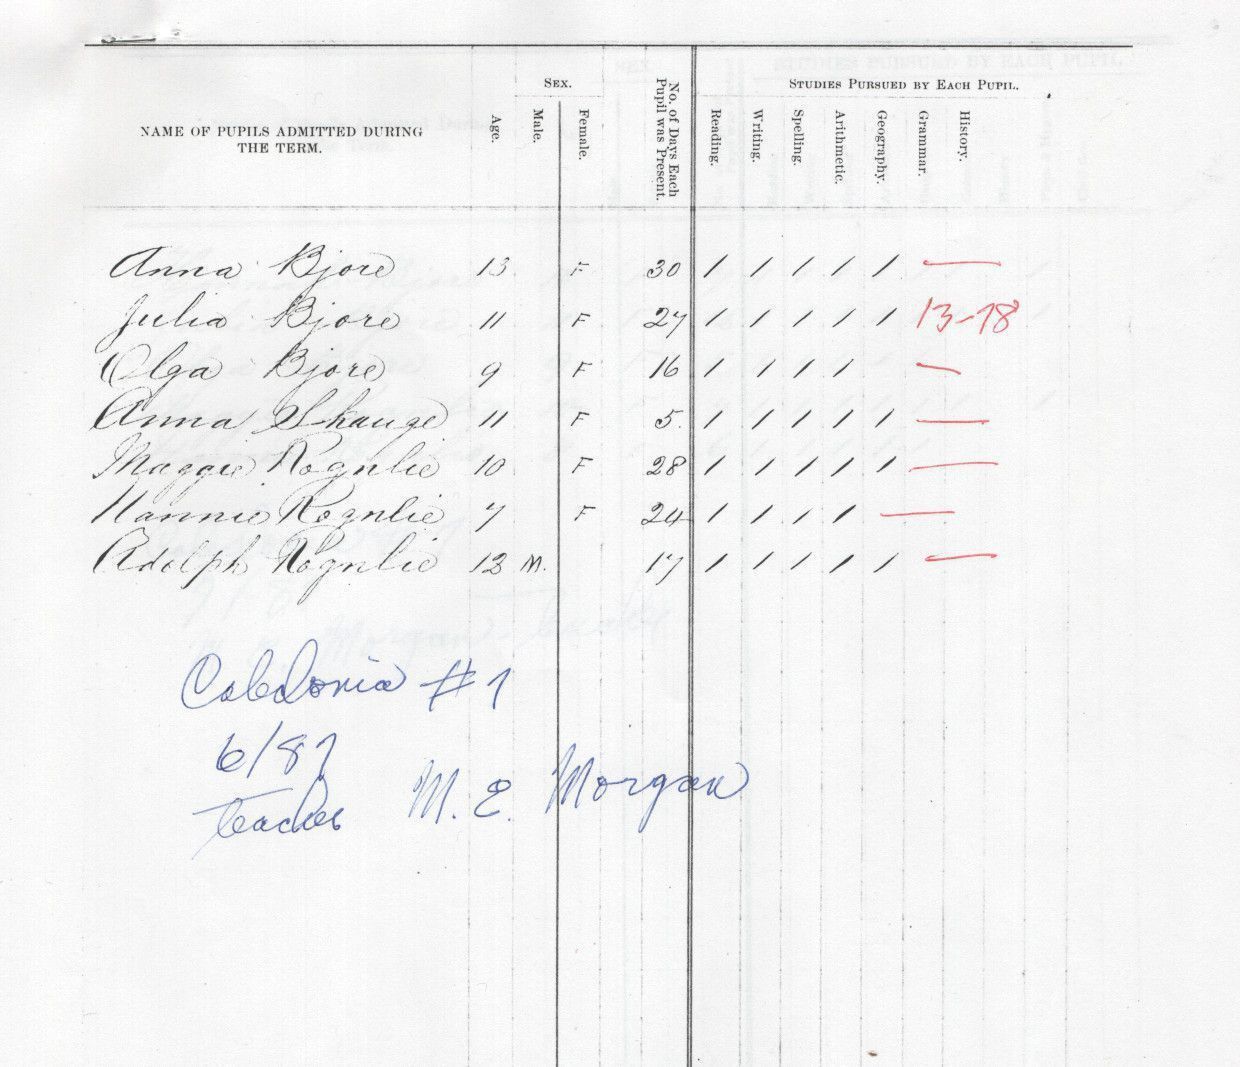 SEX. STUDIES PURSUED BY EACH PUPIL.
NAME OF PUPILS ADMITTED DURING THE TERM. Age. Male. Female. No. of Days Each Pupil was Present. Reading. Writing. Spelling. Arithmetic. Geography. Grammar. History.
Anna Bjore 13 F 30 / / / / / —
Julia Bjore 11 F 27 / / / / / 13-18
Olga Bjore 9 F 16 / / / / —
Anna Skauge 11 F 5. / / / / / —
Maggie Rognlie 10 F 28 / / / / / —
Hannie Rognlie 7 F 24 / / / / —
Adolph Rognlie 12 M. 17 / / / / / —
Caledonia #1
6/87
teacher M. E. Morgan